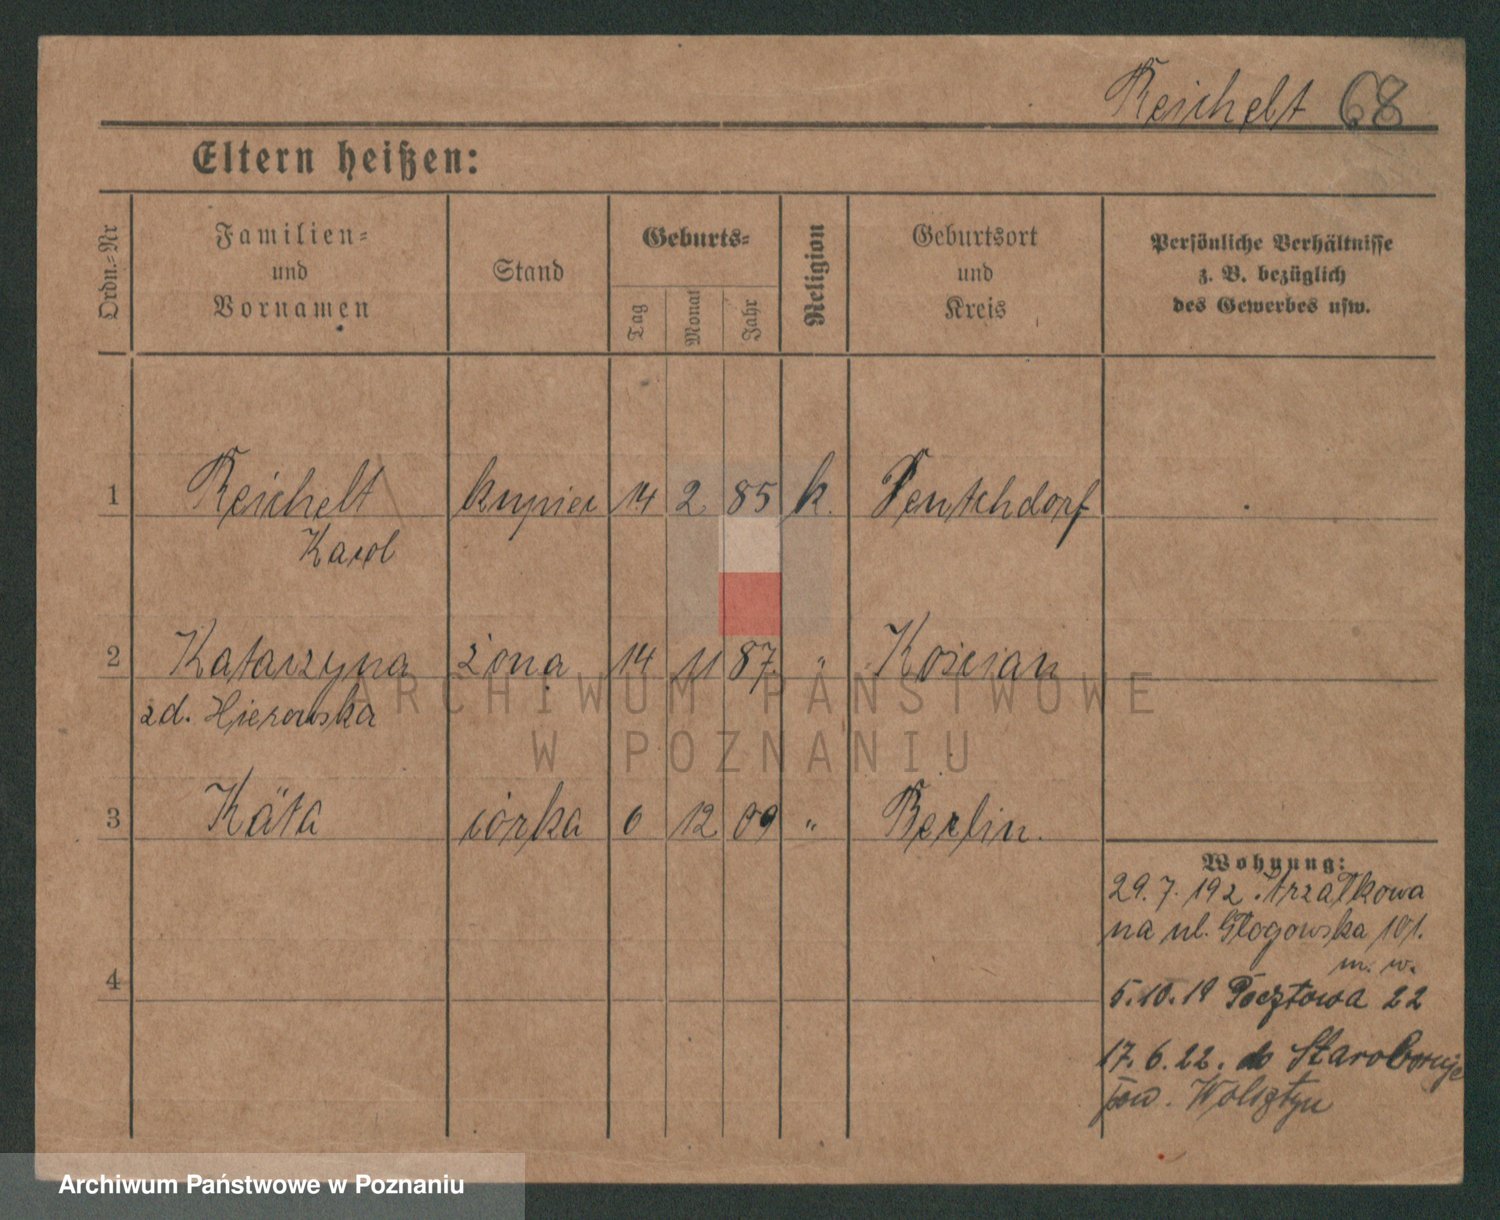 Reichelt 68
Eltern heißen:
Ordn.=Nr
Familien=
und
Vornamen
Stand
Geburts=
Tag
Monat
Jahr
Religion
Geburtsort
und
Kreis
Persönliche Verhältnisse
z. B. bezüglich
des Gewerbes usw.
1 Reichelt kupiec 14 2 85 k. Deutschdorf
Karol
2 Katarzyna żona 14 11 87. " Kościan
zd. Hierowska
3 Käta córka 6 12 09 " Berlin.
Wohnung:
29.7.192. Strzałkowa
na ul. Głogowska 101.
m. w.
5.10.19 Pocztowa 22
17.6.22. do Staroboruje
pow. Wolsztyn
4
ARCHIWUM PAŃSTWOWE
W POZNANIU
Archiwum Państwowe w Poznaniu